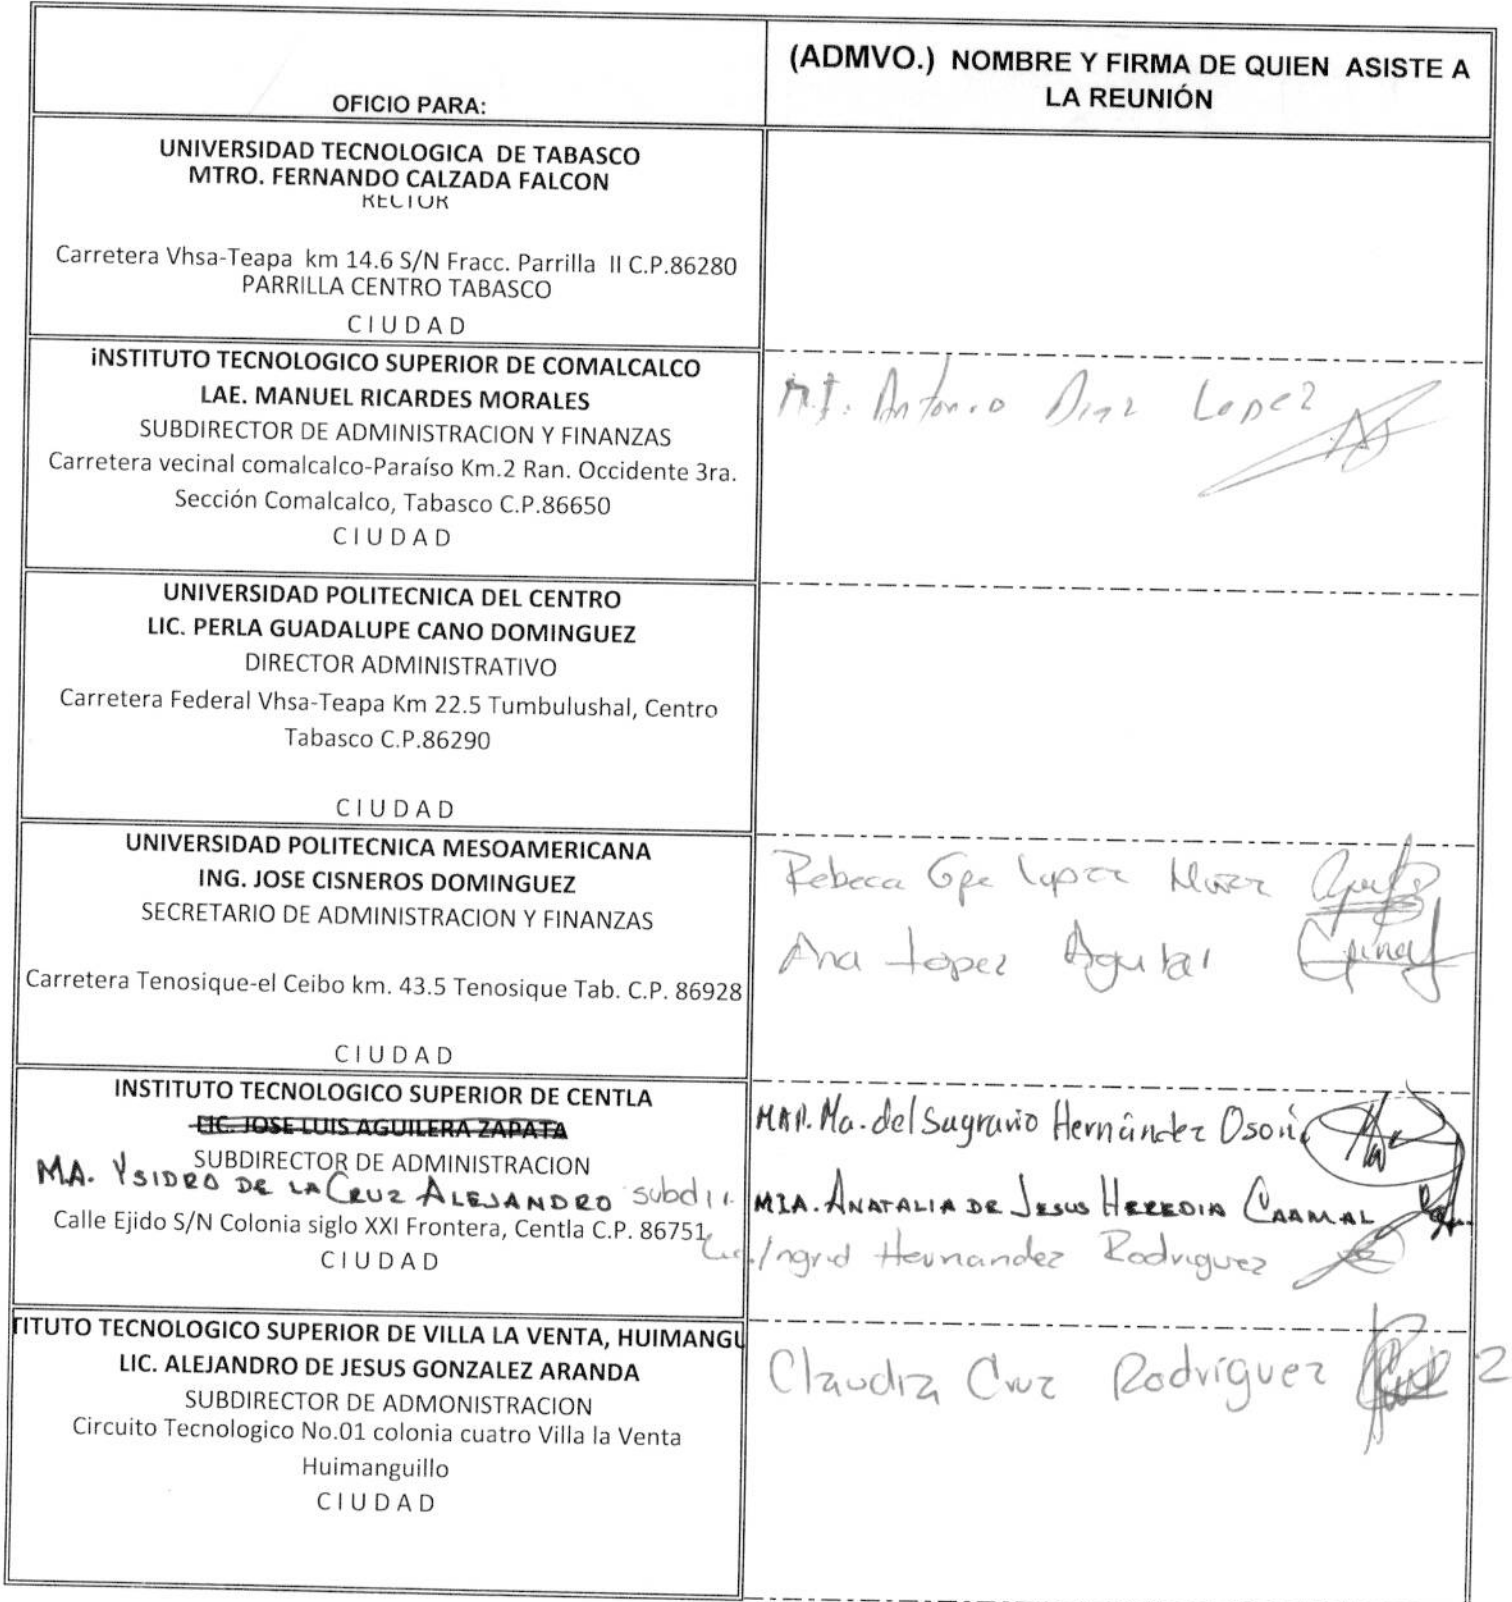 OFICIO PARA:
(ADMVO.) NOMBRE Y FIRMA DE QUIEN ASISTE A
LA REUNIÓN
UNIVERSIDAD TECNOLOGICA DE TABASCO
MTRO. FERNANDO CALZADA FALCON
RECTOR
Carretera Vhsa-Teapa km 14.6 S/N Fracc. Parrilla II C.P.86280
PARRILLA CENTRO TABASCO
C I U D A D
iNSTITUTO TECNOLOGICO SUPERIOR DE COMALCALCO
LAE. MANUEL RICARDES MORALES
SUBDIRECTOR DE ADMINISTRACION Y FINANZAS
Carretera vecinal comalcalco-Paraíso Km.2 Ran. Occidente 3ra.
Sección Comalcalco, Tabasco C.P.86650
C I U D A D
M.I. Antonio Diaz Lopez
UNIVERSIDAD POLITECNICA DEL CENTRO
LIC. PERLA GUADALUPE CANO DOMINGUEZ
DIRECTOR ADMINISTRATIVO
Carretera Federal Vhsa-Teapa Km 22.5 Tumbulushal, Centro
Tabasco C.P.86290
C I U D A D
UNIVERSIDAD POLITECNICA MESOAMERICANA
ING. JOSE CISNEROS DOMINGUEZ
SECRETARIO DE ADMINISTRACION Y FINANZAS
Carretera Tenosique-el Ceibo km. 43.5 Tenosique Tab. C.P. 86928
C I U D A D
Rebeca Gpe Lopez
Ana Lopez Aguilar
INSTITUTO TECNOLOGICO SUPERIOR DE CENTLA
LIC. JOSE LUIS AGUILERA ZAPATA
SUBDIRECTOR DE ADMINISTRACION
M.A. YSIDRO DE LA CRUZ ALEJANDRO subdir.
Calle Ejido S/N Colonia siglo XXI Frontera, Centla C.P. 86751
C I U D A D
MAP. Ma. del Sagrario Hernández Osorio
MIA. ANATALIA DE JESUS HEREDIA CAAMAL
Lic. Ingrid Hernandez Rodriguez
TITUTO TECNOLOGICO SUPERIOR DE VILLA LA VENTA, HUIMANGU
LIC. ALEJANDRO DE JESUS GONZALEZ ARANDA
SUBDIRECTOR DE ADMONISTRACION
Circuito Tecnologico No.01 colonia cuatro Villa la Venta
Huimanguillo
C I U D A D
Claudia Cruz Rodríguez
2